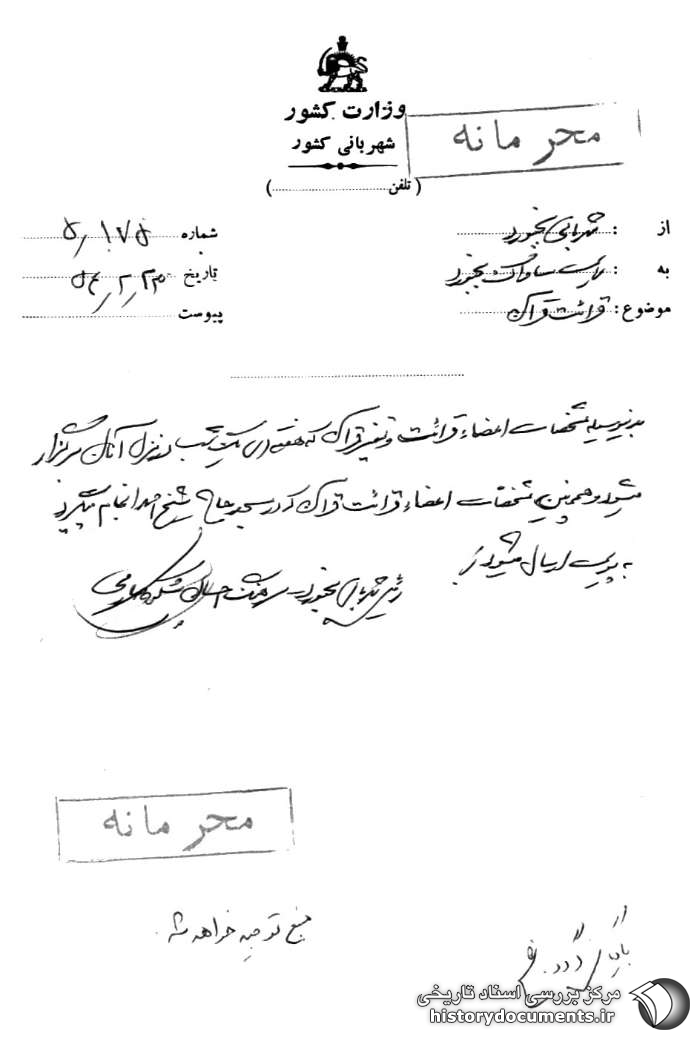 وزارت کشور
شهربانی کشور
محرمانه
( تلفن .......... )
از : شهربانی بجنورد
شماره ۱۷۵ر۵
به : ریاست ساواک بجنورد
تاریخ ۵۴٫۲٫۲۳
موضوع : قرائت قرآن
پیوست
بدینوسیله مشخصات اعضاء قرائت و تفسیر قرآن که هفته‌ای یک شب در منزل آنان برگزار
میشود و همچنین مشخصات اعضاء قرائت قرآن که در مسجد حاج شیخ احمد انجام میگیرد
به پیوست ارسال میشود
رئیس شهربانی بجنورد - سرهنگ
محرمانه
منبع توجیه خواهد شد
بایگانی گردد
مرکز بررسی اسناد تاریخی
historydocuments.ir